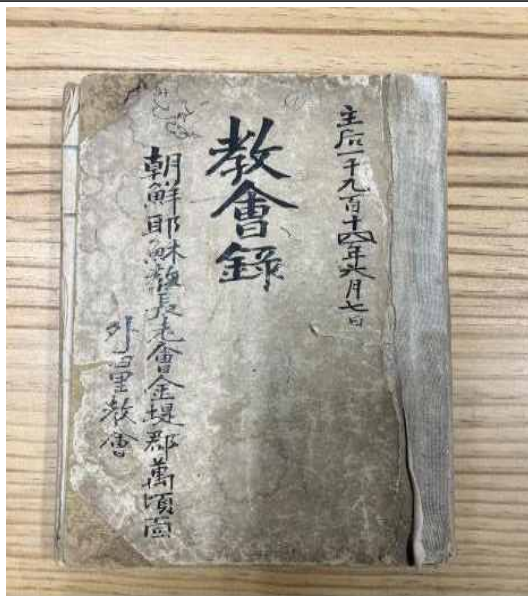 主后一千九百十四年六月七日
教會錄
朝鮮耶穌教長老會金堤郡萬頃面
里教會